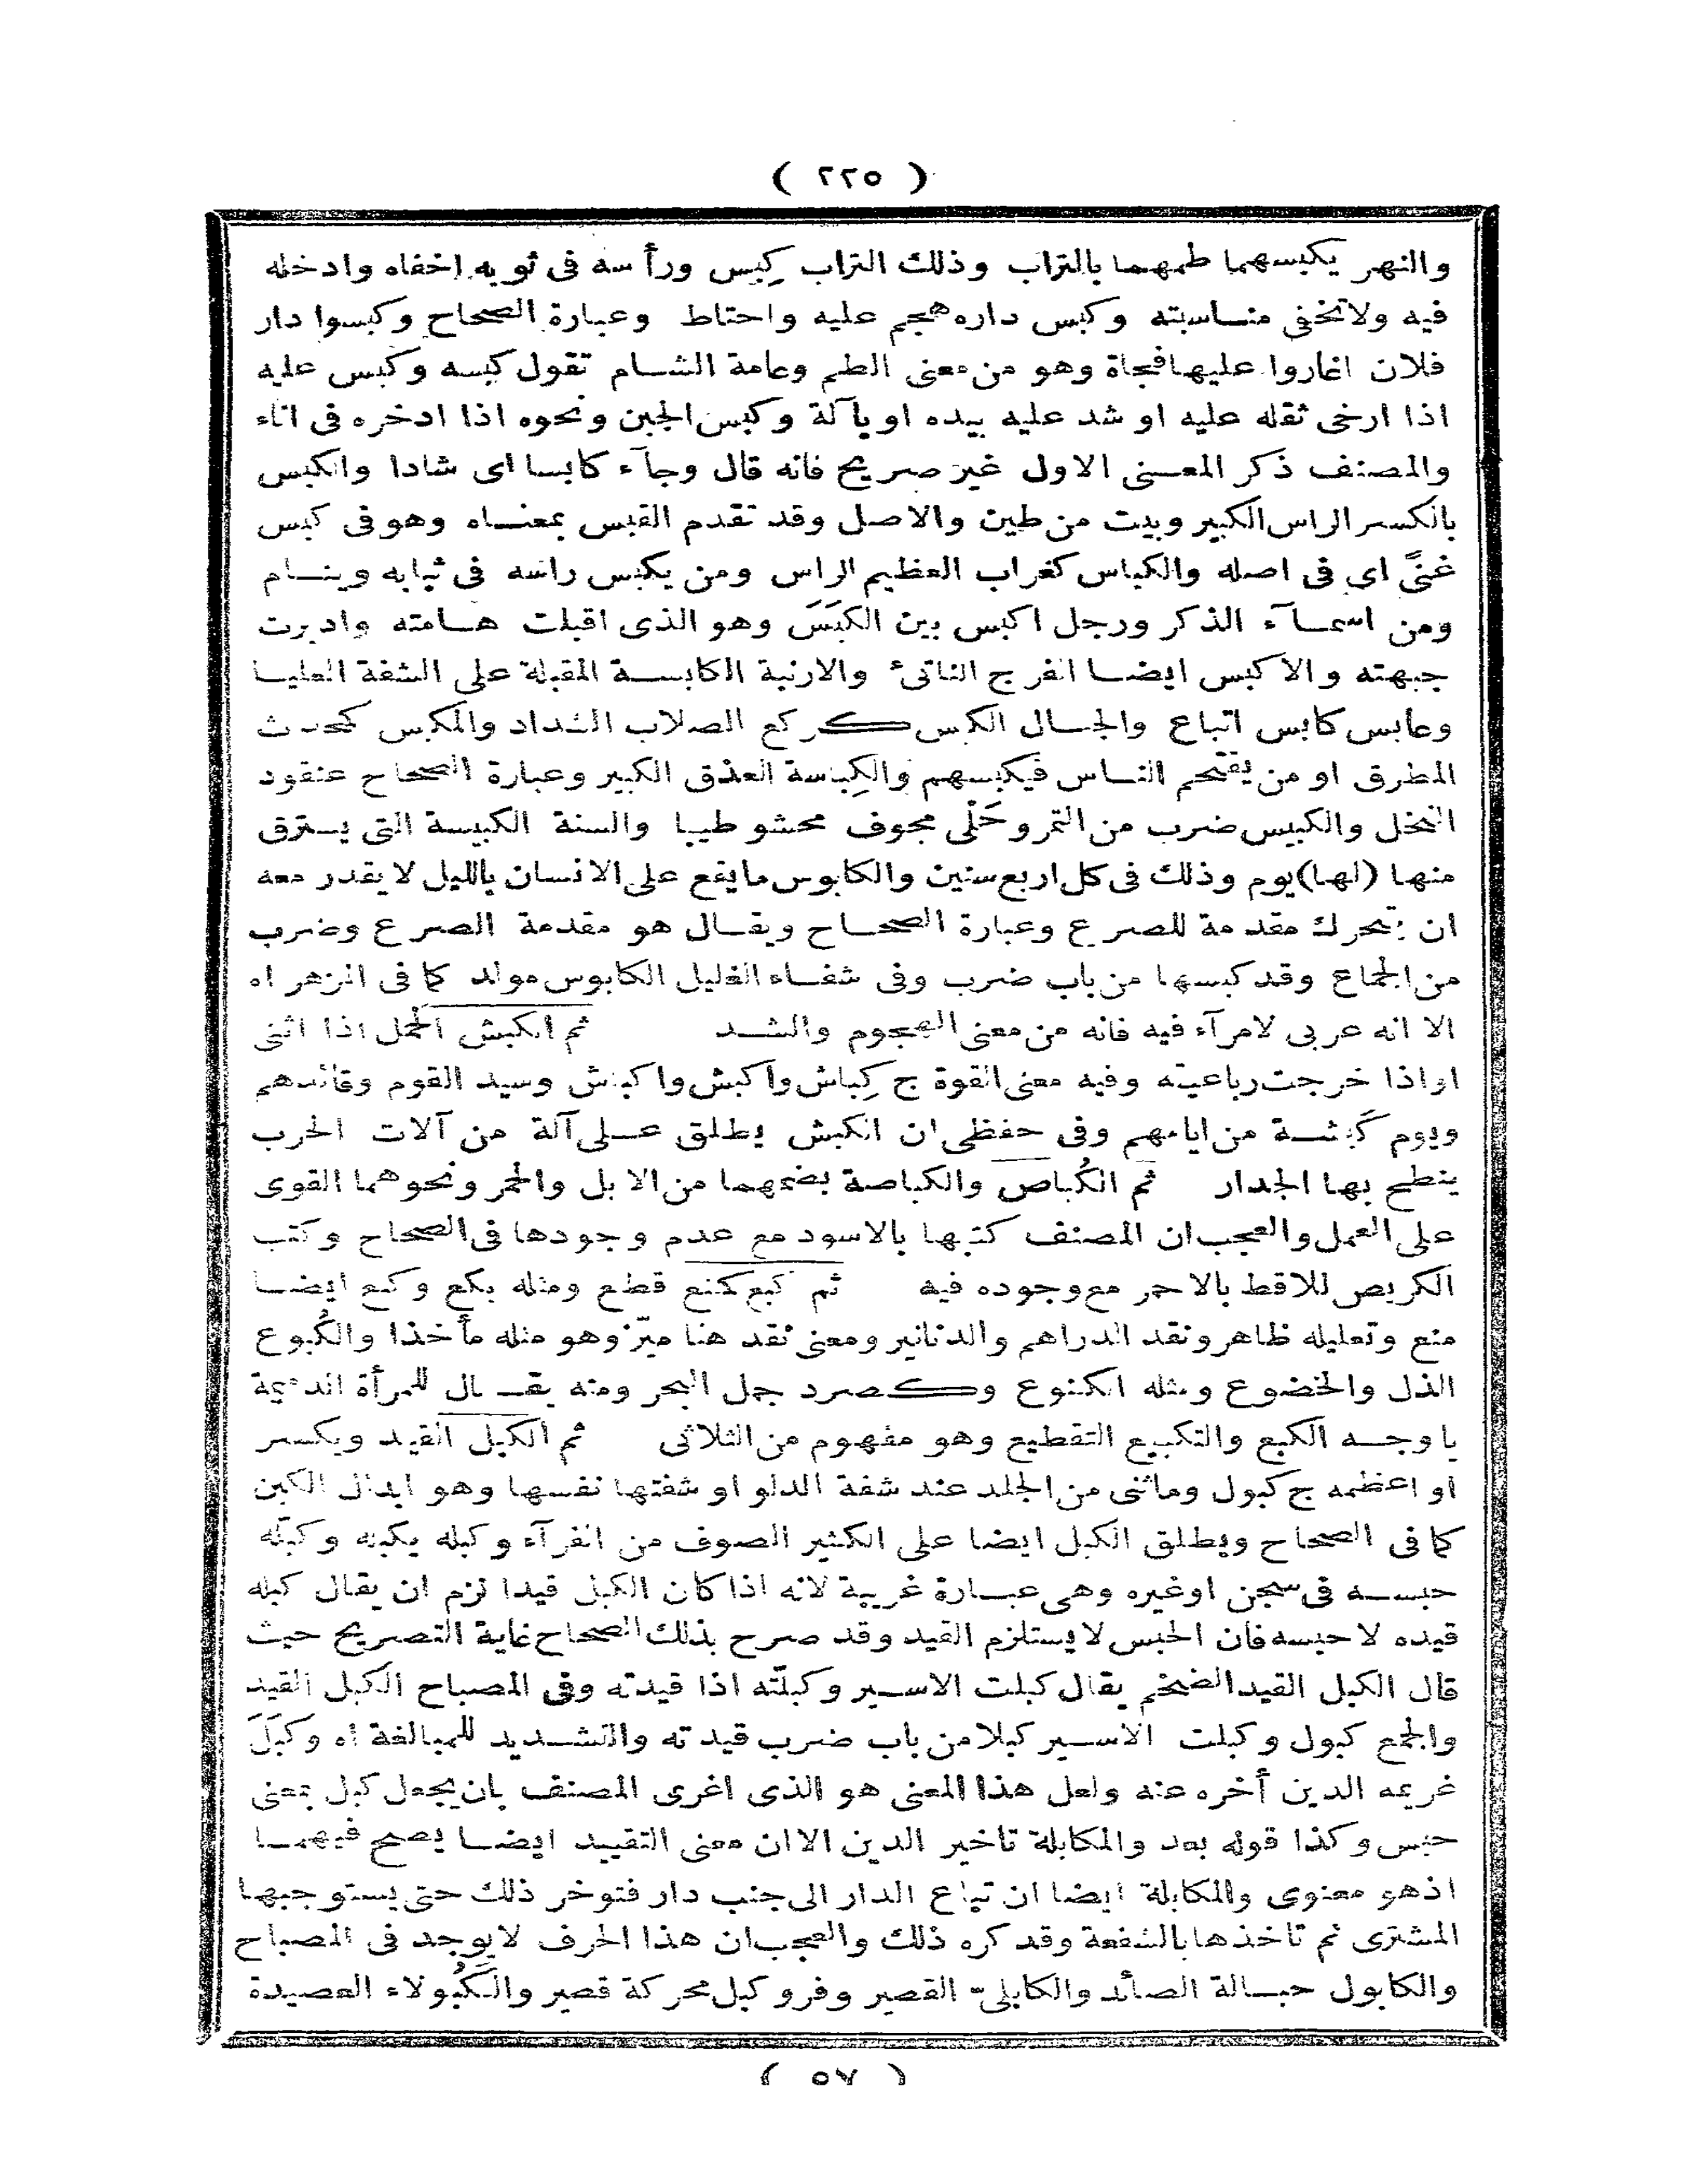 ( ٢٢٥ )
والنهر يكبسهما طمهما بالتراب وذلك التراب كِبس ورأسه فى ثوبه اخفاه وادخله
فيه ولا تخفى مناسبته وكبس داره هجم عليه واحتاط وعبارة الصحاح وكبسوا دار
فلان اغاروا عليها فجاة وهو من معنى الطم وعامة الشام تقول كبسه وكبس عليه
اذا ارخى ثقله عليه او شد عليه بيده او بآلة وكبس الجبن ونحوه اذا ادخره فى اناء
والمصنف ذكر المعنى الاول غير صريح فانه قال وجآء كابسا اى شادا والكبس
بالكسر الراس الكبير وبيت من طين والاصل وقد تقدم القبس بمعناه وهو فى كبس
غنًى اى فى اصله والكباس كغراب العظيم الراس ومن يكبس راسه فى ثيابه وينام
ومن اسمآء الذكر ورجل اكبس بين الكبَسَ وهو الذى اقبلت هامته وادبرت
جبهته والاكبس ايضا الفرج الناتئ والارنبة الكابسة المقبلة على الشفة العليا
وعابس كابس اتباع والجبال الكبس كركع الصلاب الشداد والمكبس كمحدث
المطرق او من يقتحم الناس فيكبسهم والكِباسة العذق الكبير وعبارة الصحاح عنقود
النخل والكبيس ضرب من التمر وحَلْى مجوف محشو طيبا والسنة الكبيسة التى يسترق
منها (لها) يوم وذلك فى كل اربع سنين والكابوس ما يقع على الانسان بالليل لا يقدر معه
ان يتحرك مقدمة للصرع وعبارة الصحاح ويقال هو مقدمة الصرع وضرب
من الجماع وقد كبسها من باب ضرب وفى شفاء الغليل الكابوس مولد كما فى المزهر اه
الا انه عربى لامرآء فيه فانه من معنى الهجوم والشد ثم الكبش الحمل اذا اثنى
او اذا خرجت رباعيته وفيه معنى القوة ج كِباش وأكبش واكباش وسيد القوم وقائدهم
ويوم كبشة من ايامهم وفى حفظى ان الكبش يطلق على آلة من آلات الحرب
ينطح بها الجدار ثم الكُباص والكباصة بضمهما من الابل والحمر ونحوهما القوى
على العمل والعجب ان المصنف كتبها بالاسود مع عدم وجودها فى الصحاح وكتب
الكريص للاقط بالاحمر مع وجوده فيه ثم كبع كمنع قطع ومثله بكع وكبع ايضا
منع وتعليله ظاهر ونقد الدراهم والدنانير ومعنى نقد هنا ميّز وهو مثله مأخذا والكُبوع
الذل والخضوع ومثله الكنوع وكصرد جمل البحر ومنه يقال للمرأة الدميمة
يا وجه الكبع والتكبيع التقطيع وهو مفهوم من الثلاثى ثم الكبل القيد ويكسر
او اعظمه ج كبول وماثنى من الجلد عند شفة الدلو او شفتها نفسها وهو ابدال الكبن
كما فى الصحاح ويطلق الكبل ايضا على الكثير الصوف من الفرآء وكبله يكبله وكبّله
حبسه فى سجن او غيره وهى عبارة غريبة لانه اذا كان الكبل قيدا لزم ان يقال كبله
قيده لا حبسه فان الحبس لا يستلزم القيد وقد صرح بذلك الصحاح غاية التصريح حيث
قال الكبل القيد الضخم يقال كبلت الاسير وكبلّته اذا قيدته وفى المصباح الكبل القيد
والجمع كبول وكبلت الاسير كبلا من باب ضرب قيدته والتشديد للمبالغة اه وكبَلَ
غريمه الدين أخره عنه ولعل هذا المعنى هو الذى اغرى المصنف بان يجعل كبل بمعنى
حبس وكذا قوله بعد والمكابلة تاخير الدين الا ان معنى التقييد ايضا يصح فيهما
اذ هو معنوى والمكابلة ايضا ان تباع الدار الى جنب دار فتوخر ذلك حتى يستوجبها
المشترى ثم تاخذها بالشفعة وقد كره ذلك والعجب ان هذا الحرف لا يوجد فى المصباح
والكابول حبالة الصائد والكابلىّ القصير وفرو كبل محركة قصير والكَبُولاء العصيدة
( ٥٧ )